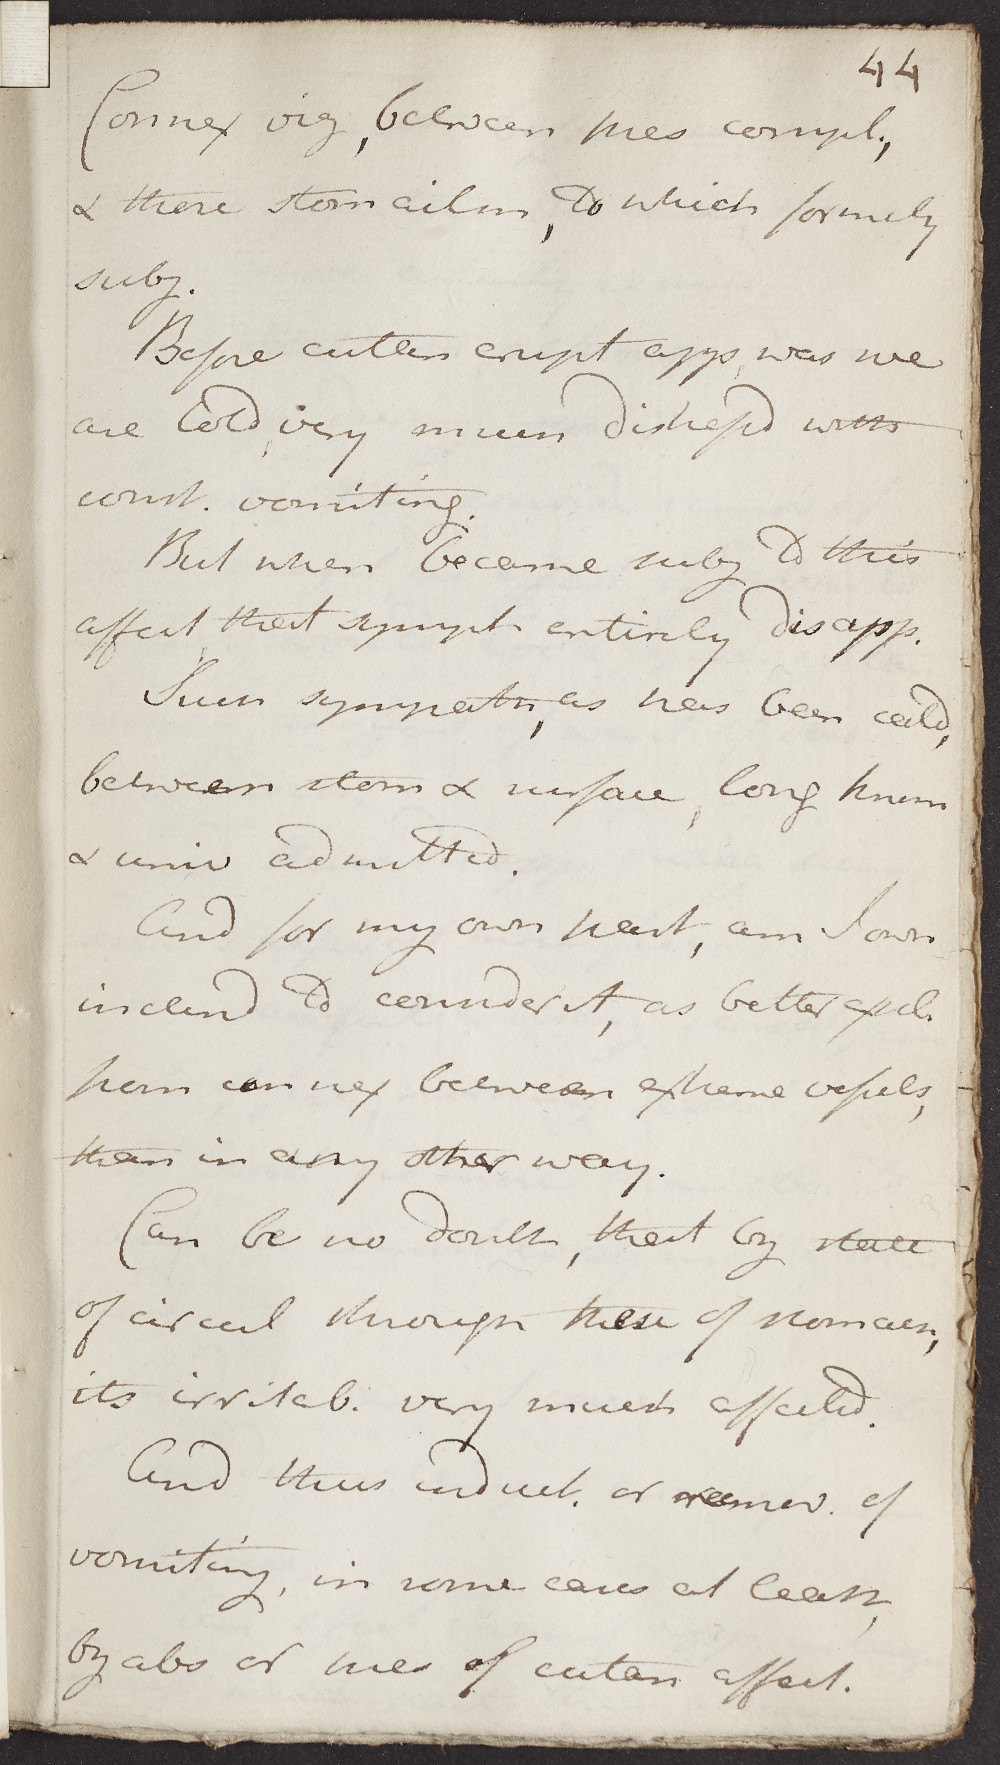 44
Connex viz, between pres compl.,
& there stom ailm, to which formerly
subj.
Before cutan erupt app, was we
are told, very much distressd with
const. vomiting.
But when became subj to this
affect that sympt entirely disapp.
Such sympath, as has been calld,
between stom & surface, long known
& univ admitted.
And for my own part, am I own
inclend to consider it, as better expl.
from connex between extreme vessels,
than in any other way.
Can be no doubt, that by state
of circul through these of stomach,
its irritab. very much affected.
And thus induct. or remov. of
vomiting, in some cases at least,
by abs or pres of cutan affect.